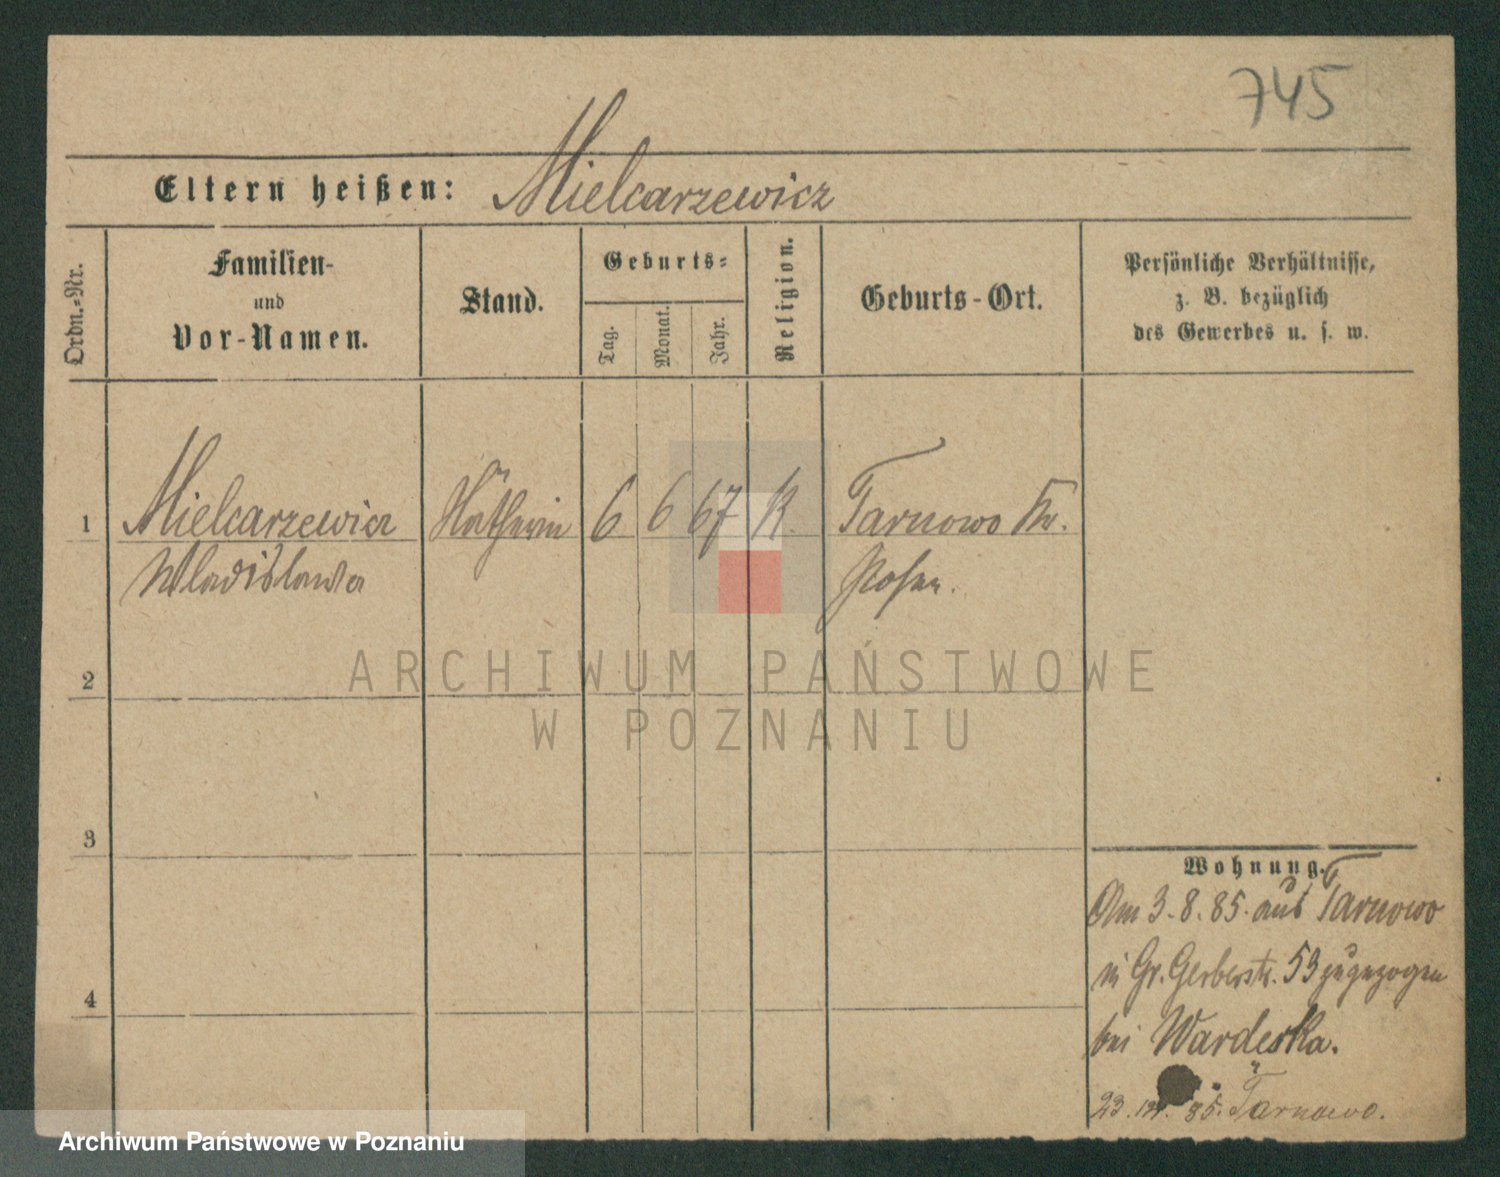 745
Eltern heißen: Mielcarzewicz
Ordn.-Nr.
Familien-
und
Vor-Namen.
Stand.
Geburts-
Tag.
Monat.
Jahr.
Religion.
Geburts-Ort.
Persönliche Verhältnisse,
z. B. bezüglich
des Gewerbes u. s. w.
1 Mielcarzewicz 6 6 67 K. Tarnowo Kr.
Wladislawa Posen.
2
3
4
Wohnung.
Am 3.8.85. aus Tarnowo
in Gr. Gerberstr. 53 zugezogen
bei Wardeska.
23. 85. Tarnowo.
ARCHIWUM PAŃSTWOWE
W POZNANIU
Archiwum Państwowe w Poznaniu